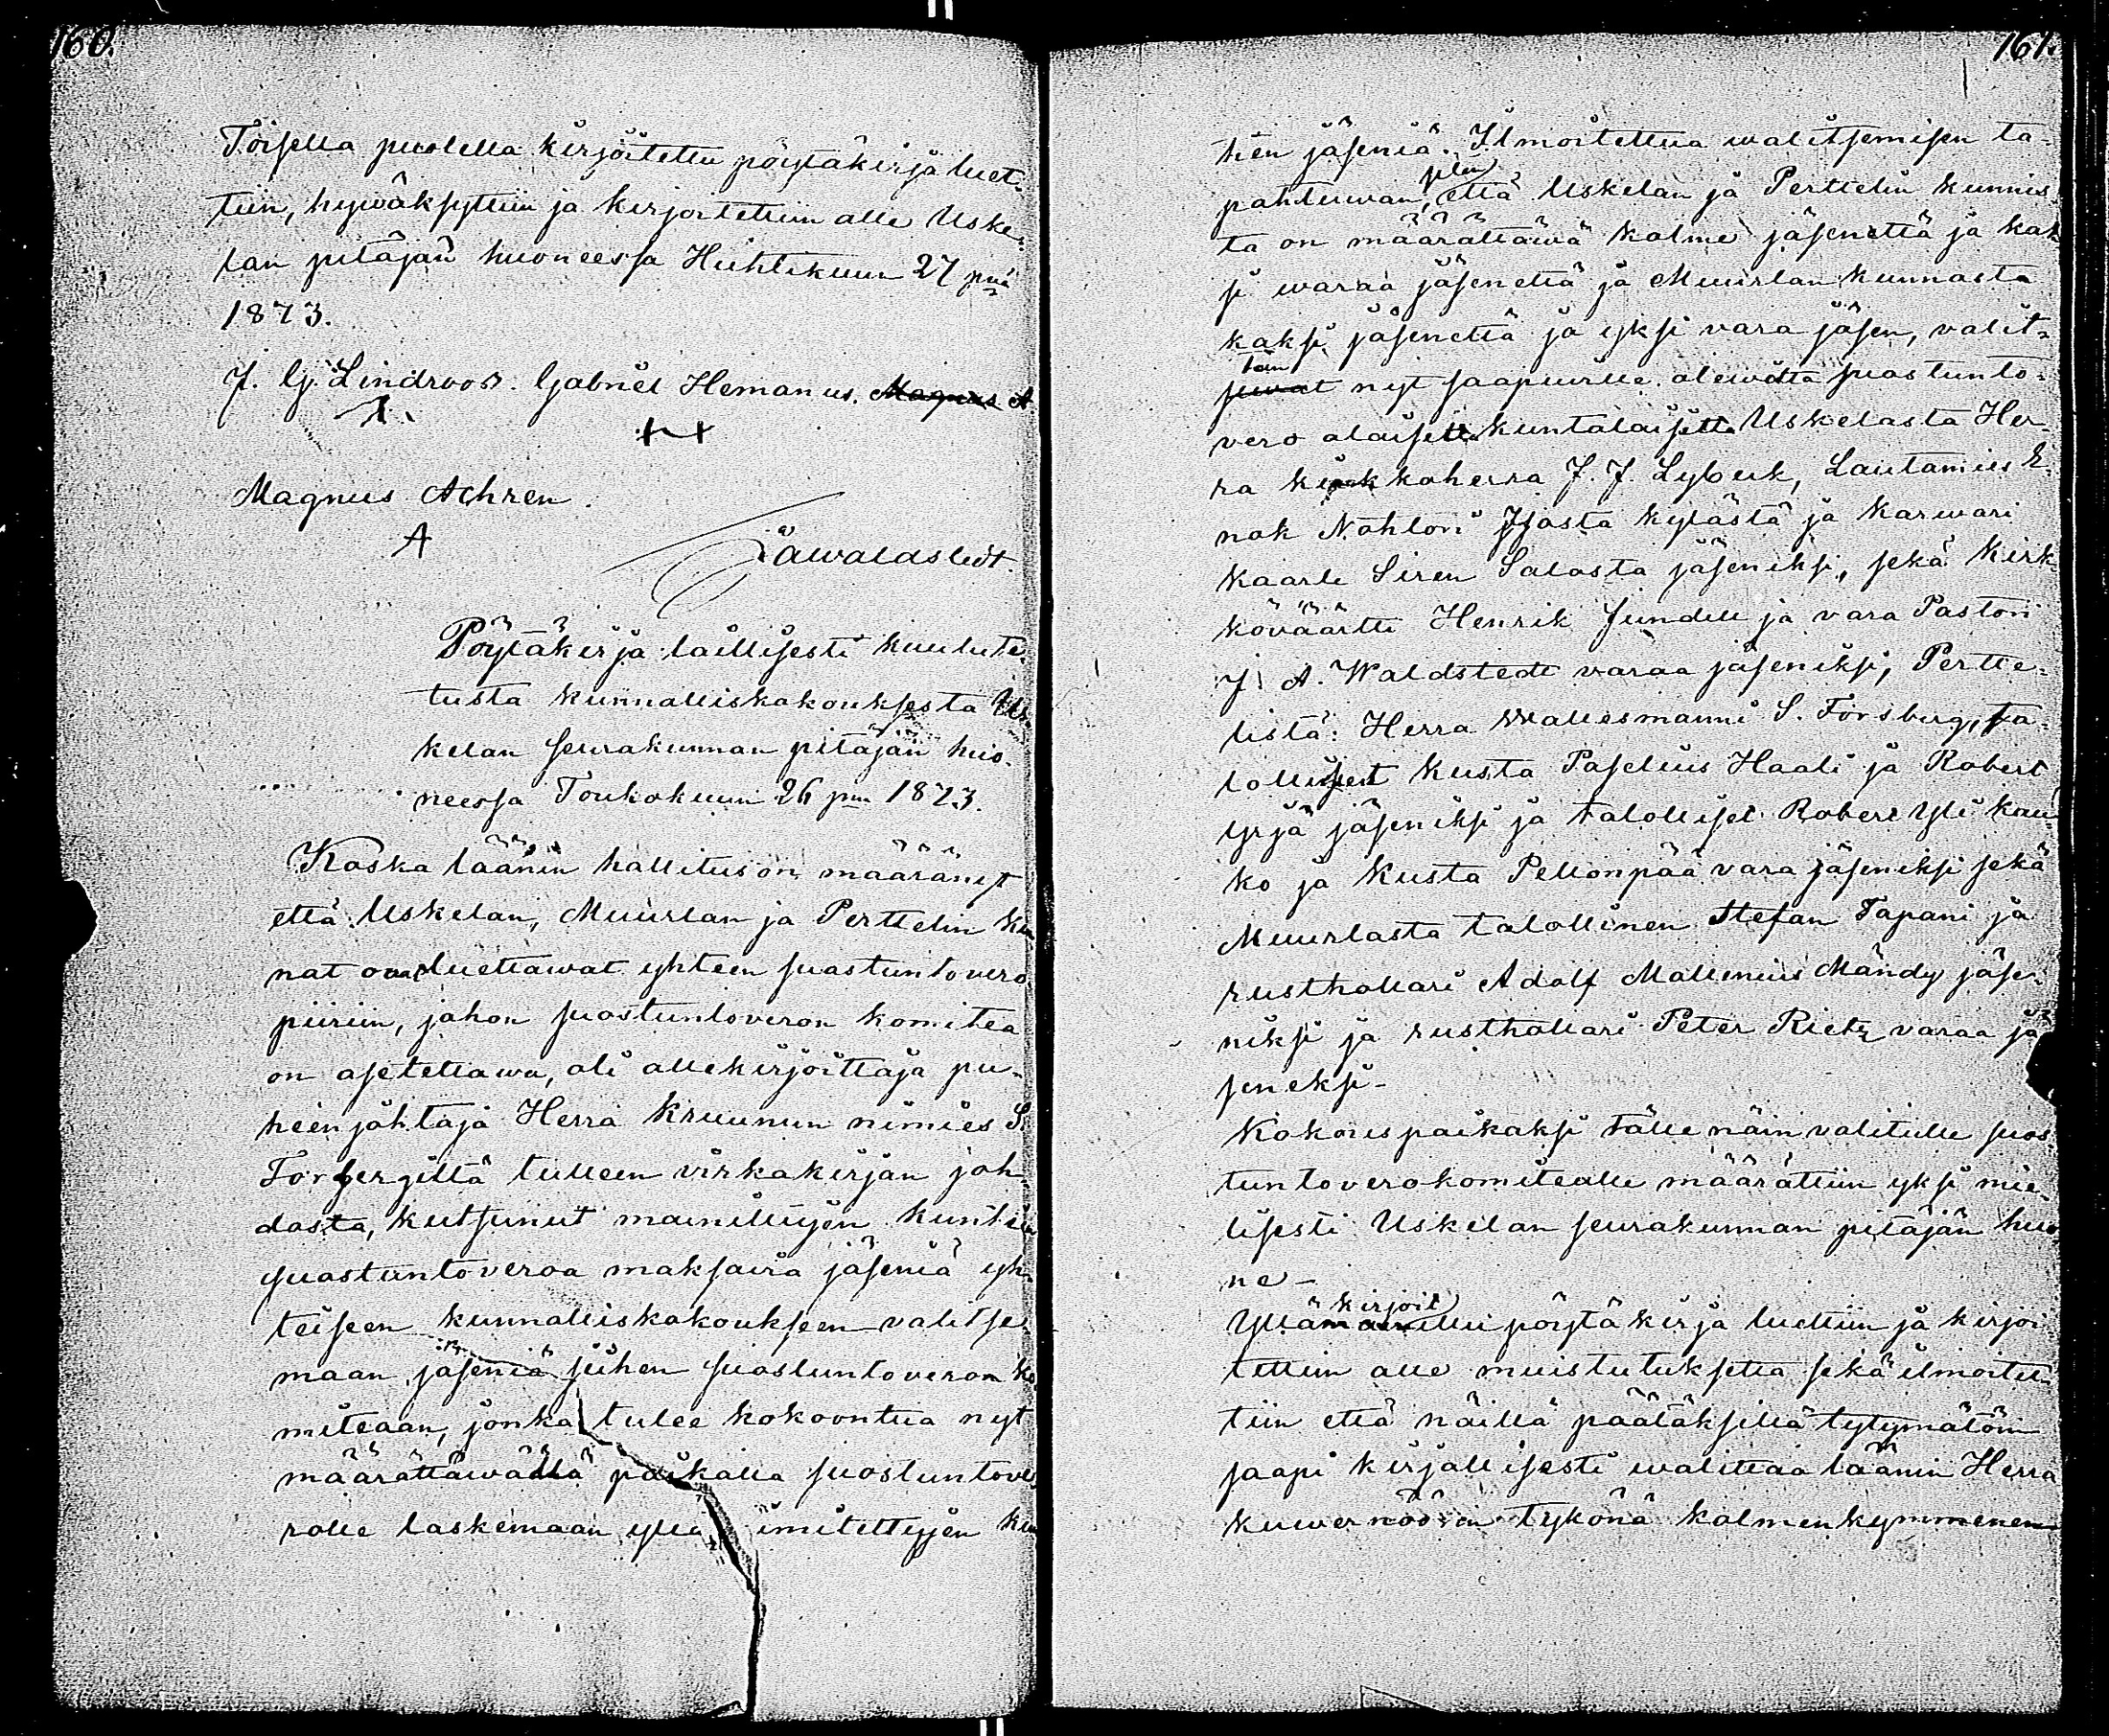 160.
Toisella puolella kirjoitettu pöytäkirja luet-
tiin, hywäksyttiin ja kirjoitettiin alle Uske-
lan pitäjän huoneessa Huhtikuun 27 pnä
1873.
J. Gj. Lindroos. Gabriel Hemanus. Magnus A
Magnus Achren.
A
JAWaldstedt.
Pöytäkirja laillisesti kuulute-
tusta kunnalliskokouksesta Us-
kelan seurakunnan pitäjän huo-
neessa Toukokuun 26 pnä 1873.
Koska läänin hallitus on määränyt
että Uskelan, Muurlan ja Perttelin kun
nat owat luettawat yhteen suostuntovero
piiriin, johon suostuntoveron komitea
on asetettawa, oli allekirjoittaja pu-
heenjohtaja Herra kruunun nimies S.
Forsbergiltä tulleen virkakirjan joh-
dosta, kutsunut mainittujen kuntein
suostuntoveroa maksavia jäseniä yh-
teiseen kunnalliskokoukseen valitse-
maan jäseniä siihen suostuntoveron ko-
miteaan, jonka tulee kokoontua nyt
määrättäwällä paikalla suostuntove-
rolle laskemaan yllä nimitettyjen kun
161.
tien jäseniä. Ilmoitettua walitsemisen ta-
siten
pahtuwan, että Uskelan ja Perttelin kunnis-
ta on määrättäwä kolme jäsenettä ja kak
si waraa jäsenettä ja Muurlan kunnasta
kaksi jäsenettä ja yksi vara jäsen, valit-
tiin
suvat nyt saapuville olewatta suostunto-
vero alaisetta kuntalaisetta Uskelasta Her-
ra kirkkoherra J. J. Lybeck, Lautamies E-
nok Nohlori Isosta kylästä ja karwari
Kaarle Siren Salosta jäseniksi, sekä kirk
koväärtti Henrik Jundell ja vara Pastori
J. A. Waldstedt varaa jäseniksi, Pertte-
listä: Herra Wallesmanni S. Forsberg, ta-
lolliset Kusta Paselius Haali ja Robert
Yrjä jäseniksi ja talolliset Robert Yli Kau-
ko ja Kusta Pellonpää vara jäseniksi sekä
Muurlasta talollinen Stefan Tapani ja
rusthollari Adolf Mallenius Mändy jäse-
niksi ja rusthollari Peter Rietz varaa jä
seneksi -
Kokouspaikaksi tälle näin valitulle suos-
tuntoverokomitealle määrättiin yksi mie-
lisesti Uskelan seurakunnan pitäjän huo
ne -
kirjoit
Yllämainittu pöytäkirja luettiin ja kirjoi
tettiin alle muistutuksetta sekä ilmoitet-
tiin että näillä päätäksillä tytymätöin
saapi kirjallisesti walittaa läänin Herra
kuwernöörin tykönä kolmenkymmenen